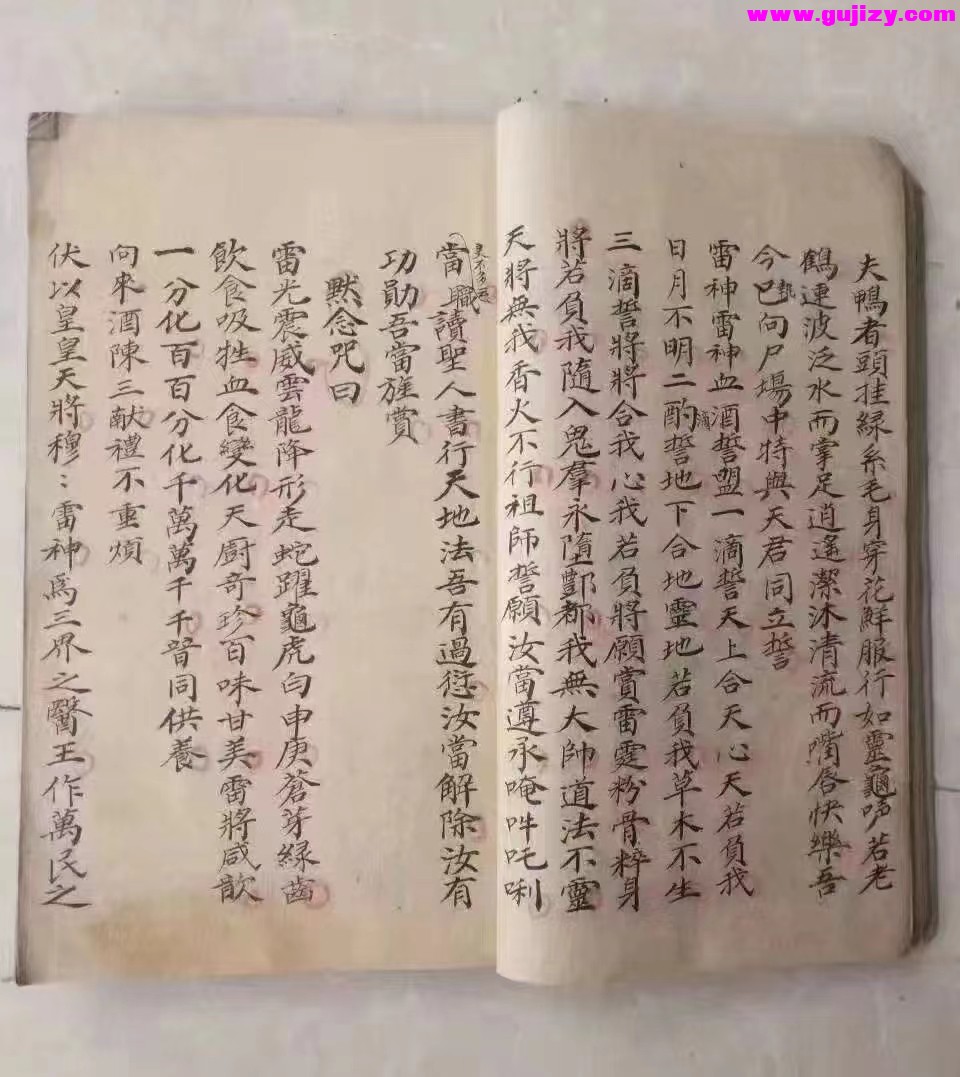 www.gujizy.com
夫鴨者頭挂緑系毛身穿花鮮服行如靈龜声若老
鶴連波泛水而掌足逍遙潔沐清流而嘴唇快樂吾
今執巴向尸場中特與天君同立誓
雷神雷神血酒誓盟一滴誓天上合天心天若負我
日月不明二酌滴誓地下合地靈地若負我草木不生
三滴誓將將合我心我若負將願賞雷霆粉骨粹身
將若負我隨入鬼羣永墮酆都我無大帥道法不靈
天將無我香火不行祖師誓願汝當遵承唵吽吒唎
當職讀聖人書行天地法吾有過愆汝當解除汝有
功勛吾當旌賞
默念咒曰
雷光震威雲龍降形走蛇躍龜虎白申庚蒼芽緑齒
飲食吸牲血食變化天厨奇珍百味甘美雷將咸歆
一分化百百分化千萬萬千千晉同供養
向來酒陳三献禮不重煩
伏以皇皇天將穆：雷神爲三界之醫王作萬民之